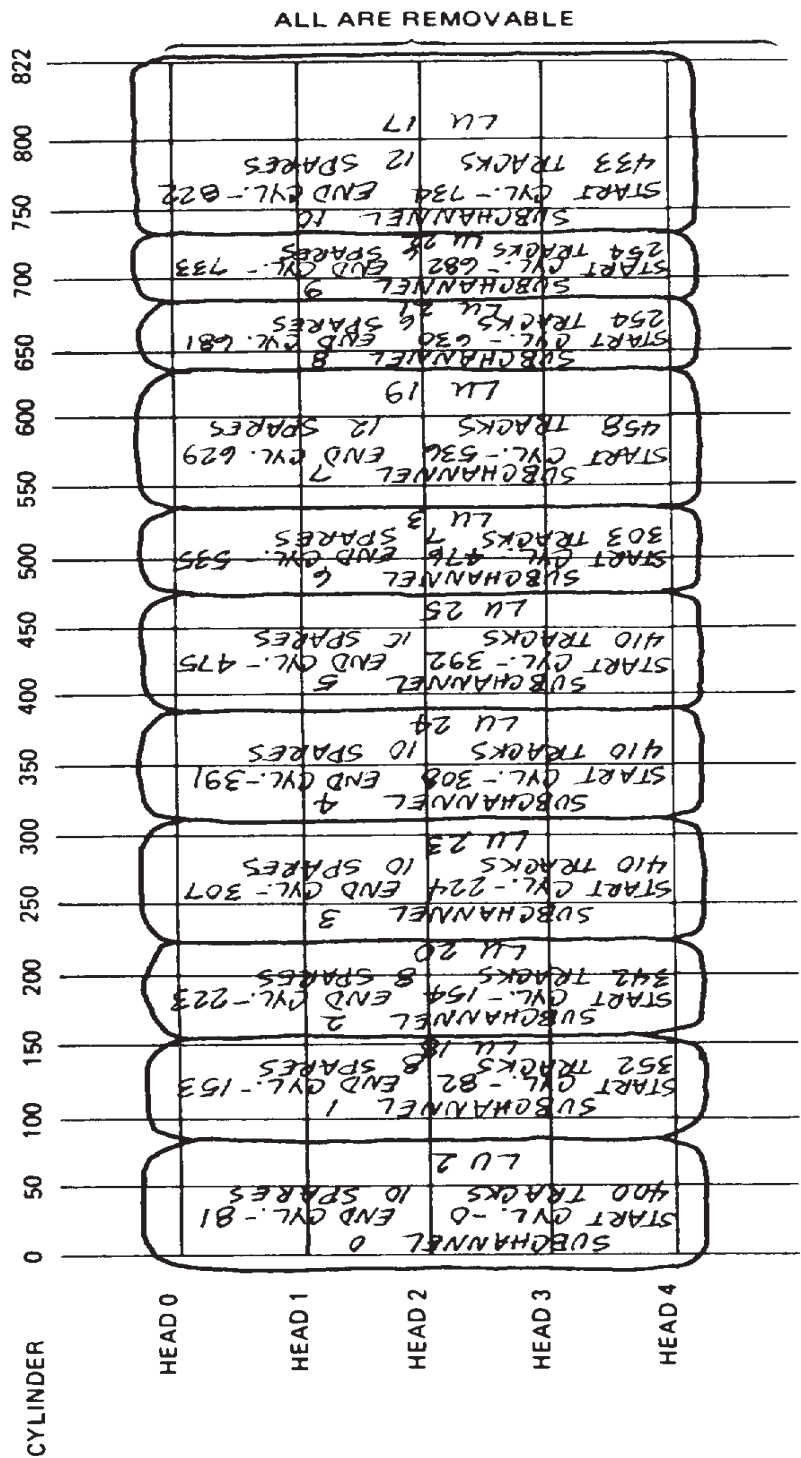 ALL ARE REMOVABLE
CYLINDER
0 50 100 150 200 250 300 350 400 450 500 550 600 650 700 750 800 822
HEAD 0
HEAD 1
HEAD 2
HEAD 3
HEAD 4
SUBCHANNEL 0
START CYL.-0 END CYL.-81
400 TRACKS 10 SPARES
LU 2
SUBCHANNEL 1
START CYL.-82 END CYL.-153
352 TRACKS 8 SPARES
LU 18
SUBCHANNEL 2
START CYL.-154 END CYL.-223
342 TRACKS 8 SPARES
LU 20
SUBCHANNEL 3
START CYL.-224 END CYL.-307
410 TRACKS 10 SPARES
LU 23
SUBCHANNEL 4
START CYL.-308 END CYL.-391
410 TRACKS 10 SPARES
LU 24
SUBCHANNEL 5
START CYL.-392 END CYL.-475
410 TRACKS 10 SPARES
LU 25
SUBCHANNEL 6
START CYL.-476 END CYL.-535
303 TRACKS 7 SPARES
LU 3
SUBCHANNEL 7
START CYL.-536 END CYL. 629
458 TRACKS 12 SPARES
LU 19
SUBCHANNEL 8
START CYL.-630 END CYL. 681
254 TRACKS 6 SPARES
LU 21
SUBCHANNEL 9
START CYL.-682 END CYL.-733
254 TRACKS 6 SPARES
LU 22
SUBCHANNEL 10
START CYL.-734 END CYL.-822
433 TRACKS 12 SPARES
LU 17